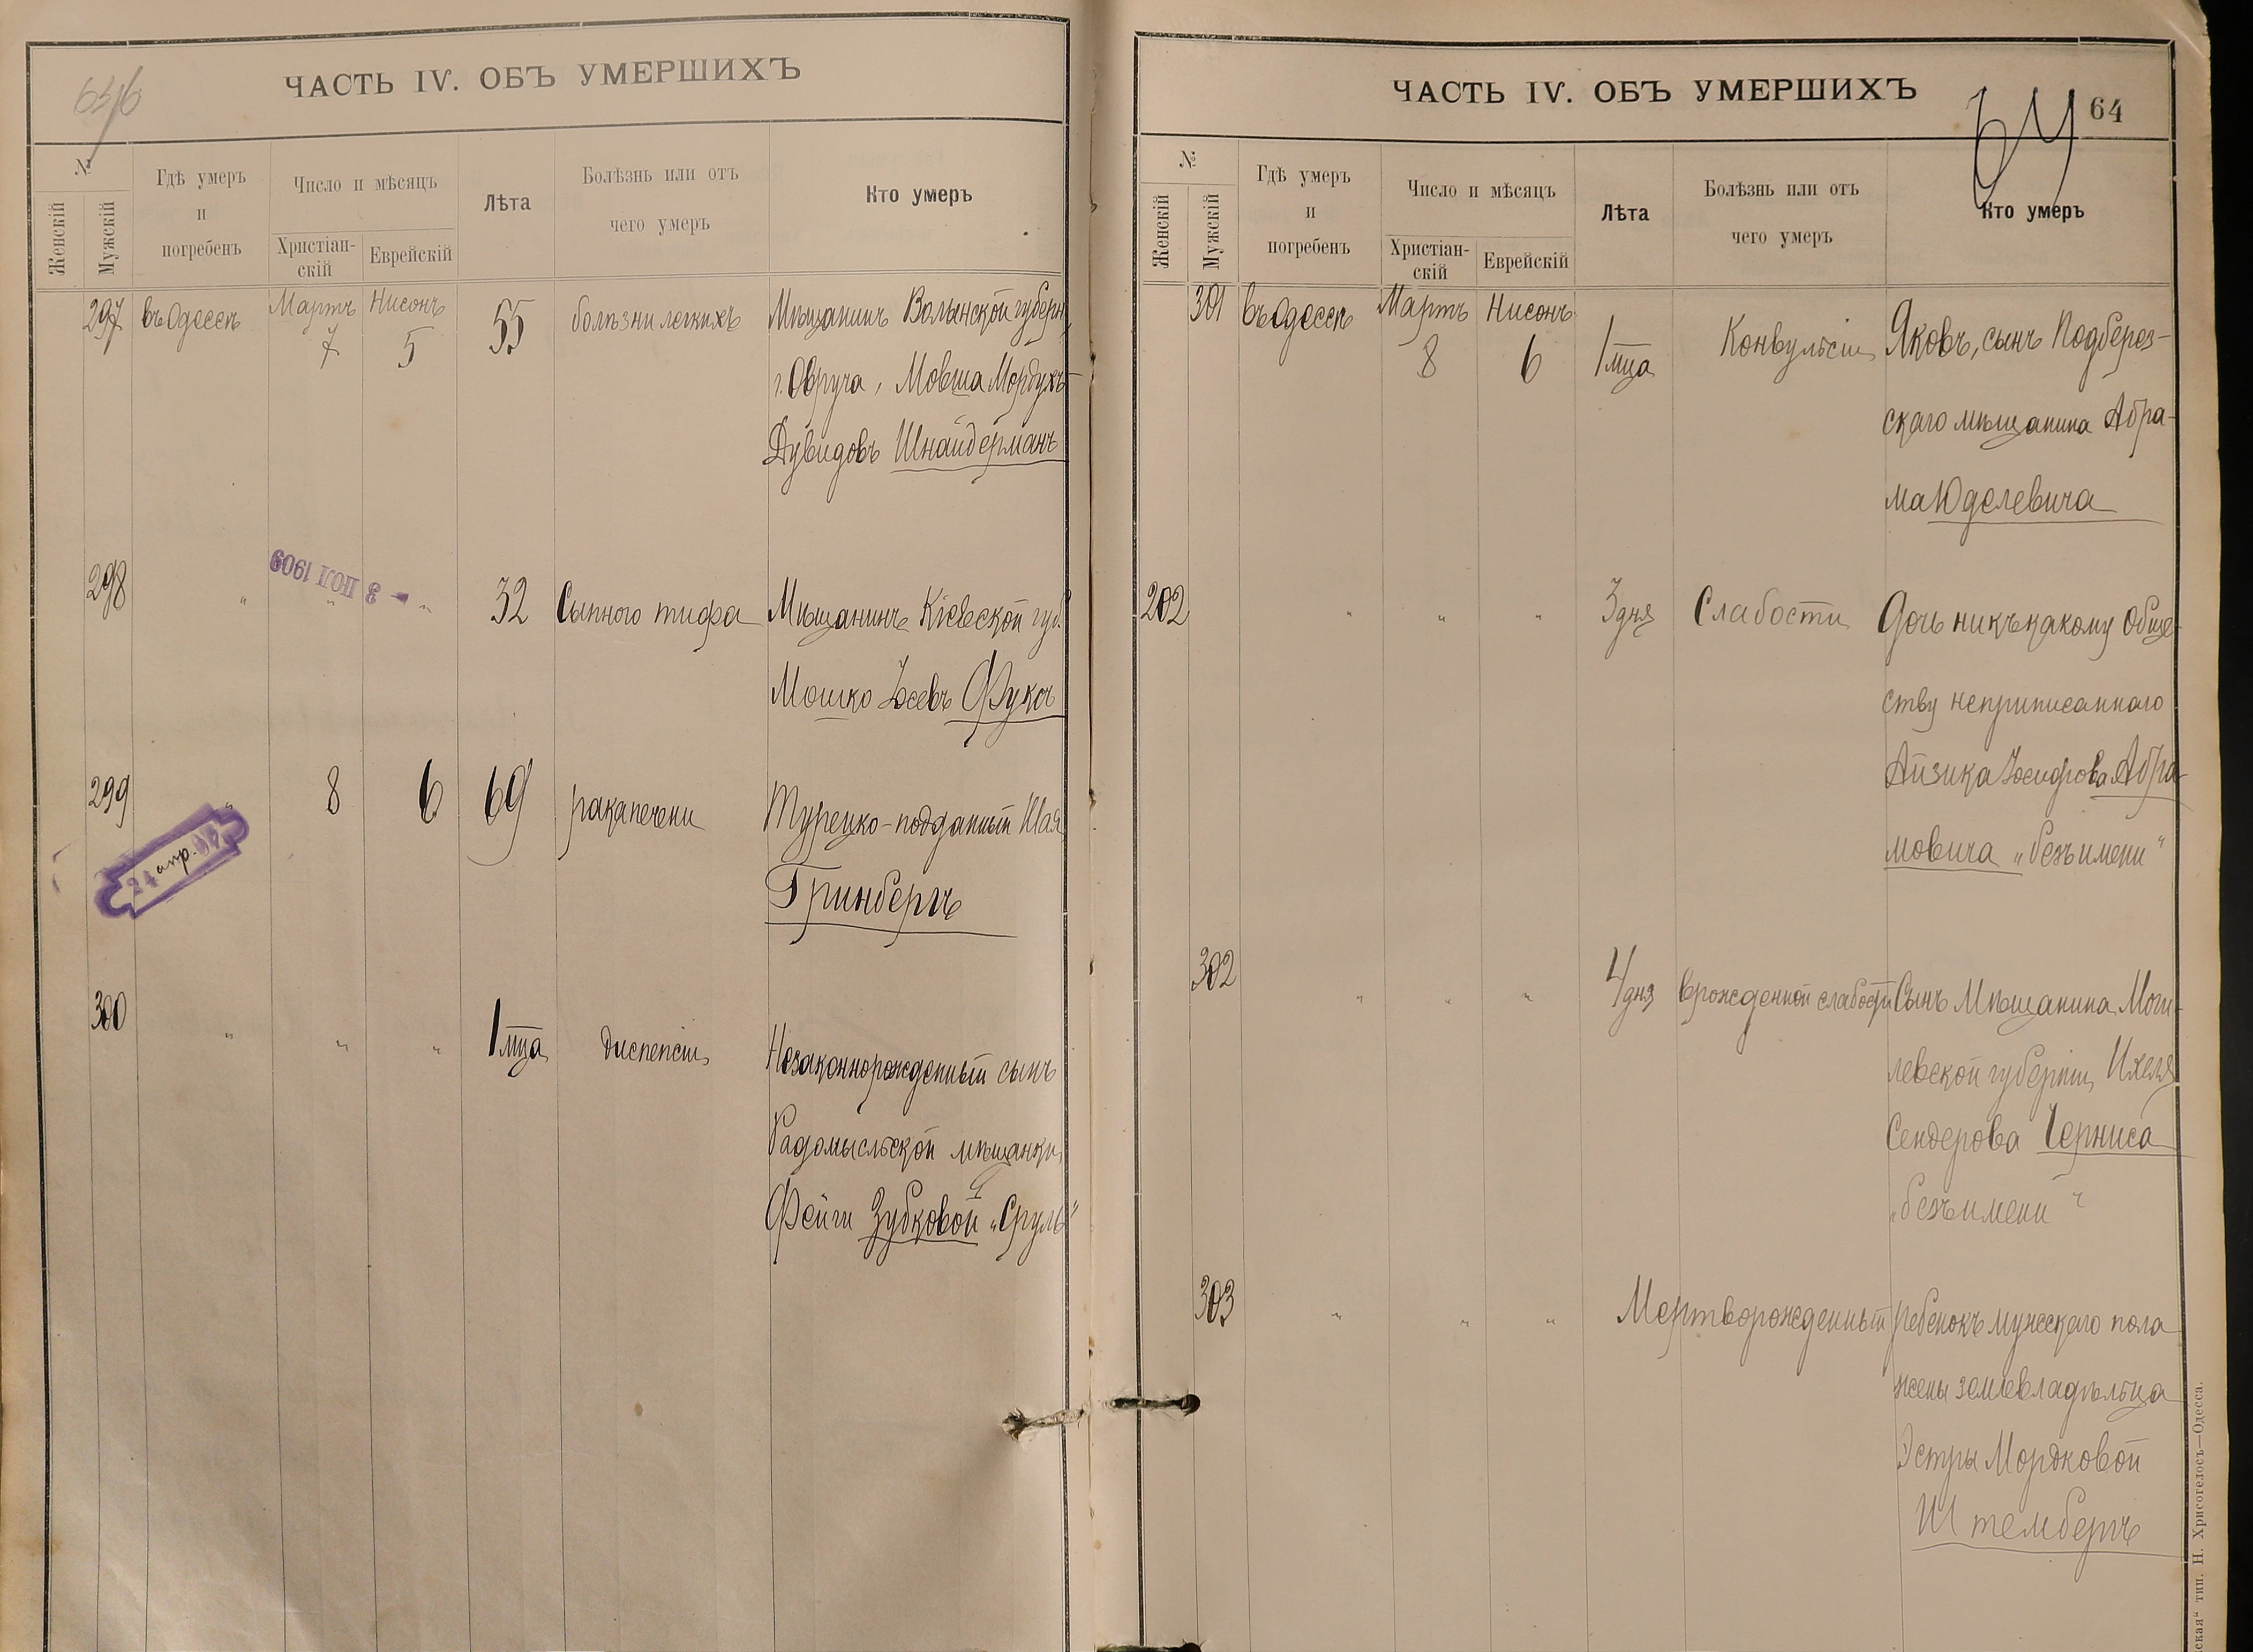 ЧАСТЬ IV. ОБЪ УМЕРШИХЪ
№
Женскій
Мужскій
Гдѣ умеръ
и
погребенъ
Число и мѣсяцъ
Христіан-
скій
Еврейскій
Лѣта
Болѣзнь или отъ
чего умеръ
Кто умеръ
297 въ Одессѣ Мартъ 7 Нисонъ 5 55 болѣзни легкихъ Мѣщанинъ Волынской губерн.
г. Овруча, Мовша Мордухъ-
Дувидовъ Шнайдерманъ
- 3 ІЮЛ 1909
298 " " " 32 Сыпного тифа Мѣщанинъ Кіевской губ.
Мошко Іосевъ Фуксъ
299 " 8 6 69 рака печени Турецко-подданный Шая
Гринбергъ
24 апр.
300 " " " 1 мца диспепсіи Незаконнорожденный сынъ
Радомысльской мѣщанки
Фейги Зубковой „Сруль"
ЧАСТЬ IV. ОБЪ УМЕРШИХЪ
64
64
№
Женскій
Мужскій
Гдѣ умеръ
и
погребенъ
Число и мѣсяцъ
Христіан-
скій
Еврейскій
Лѣта
Болѣзнь или отъ
чего умеръ
Кто умеръ
301 въ Одессѣ Мартъ 8 Нисонъ 6 1 мца Конвульсіи Яковъ, сынъ Подберез-
скаго мѣщанина Абра-
ма Юделевича
202 " " " 3 дня Слабости Дочь никъ какому Обще-
ству неприписаннаго
Айзика Іосифова Абра-
мовича „безъ имени"
302 " " " 4 дня врожденной слабости Сынъ Мѣщанина Моги-
левской губерніи, Ихеля
Сендерова Черниса
„безъ имени"
303 " " " Мертворожденный ребенокъ мужескаго пола
жены землевладѣльца
Эстры Мордковой
Штембергъ
ская" тип. Н. Хрисогелосъ—Одесса.